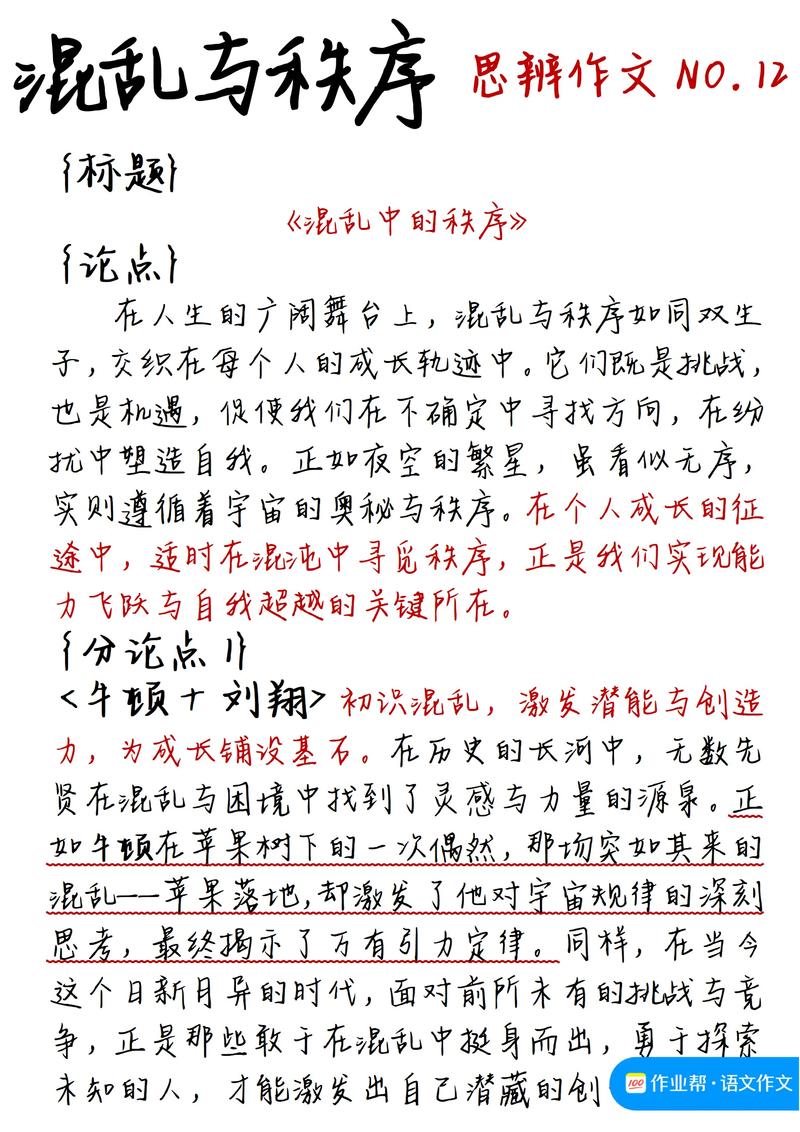 混乱与秩序 思辨作文 NO.12
{标题}
《混乱中的秩序》
{论点}
在人生的广阔舞台上，混乱与秩序如同双生
子，交织在每个人的成长轨迹中。它们既是挑战，
也是机遇，促使我们在不确定中寻找方向，在纷
扰中塑造自我。正如夜空的繁星，虽看似无序，
实则遵循着宇宙的奥秘与秩序。在个人成长的征
途中，适时在混沌中寻觅秩序，正是我们实现能
力飞跃与自我超越的关键所在。
{分论点1}
<牛顿+刘翔>初识混乱，激发潜能与创造
力，为成长铺设基石。在历史的长河中，无数先
贤在混乱与困境中找到了灵感与力量的源泉。正
如牛顿在苹果树下的一次偶然，那场突如其来的
混乱——苹果落地，却激发了他对宇宙规律的深刻
思考，最终揭示了万有引力定律。同样，在当今
这个日新月异的时代，面对前所未有的挑战与竞
争，正是那些敢于在混乱中挺身而出，勇于探索
未知的人，才能激发出自己潜藏的创
100 作业帮·语文作文